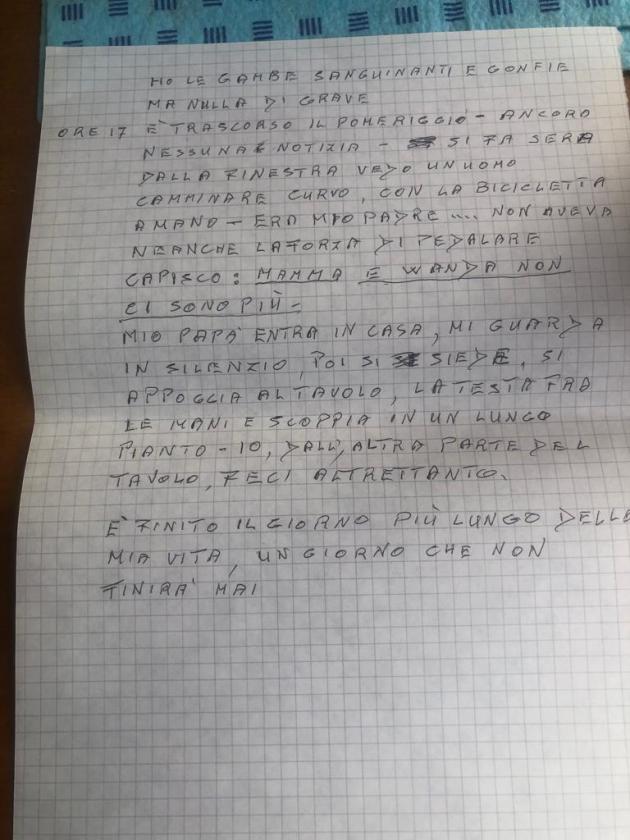 HO LE GAMBE SANGUINANTI E GONFIE
MA NULLA DI GRAVE
ORE 17 E' TRASCORSO IL POMERIGGIO - ANCORO
NESSUNA NOTIZIA - SI FA SERA
DALLA FINESTRA VEDO UN UOMO
CAMMINARE CURVO, CON LA BICICLETTA
A MANO - ERA MIO PADRE .... NON AVEVA
NEANCHE LA FORZA DI PEDALARE
CAPISCO: MAMMA E WANDA NON
CI SONO PIÙ =
MIO PAPA' ENTRA IN CASA, MI GUARDA
IN SILENZIO, POI SI SIEDE, SI
APPOGGIA AL TAVOLO, LA TESTA FRA
LE MANI E SCOPPIA IN UN LUNGO
PIANTO - IO, DALL'ALTRA PARTE DEL
TAVOLO, FECI ALTRETTANTO.
E' FINITO IL GIORNO PIÙ LUNGO DELLA
MIA VITA, UN GIORNO CHE NON
FINIRA' MAI